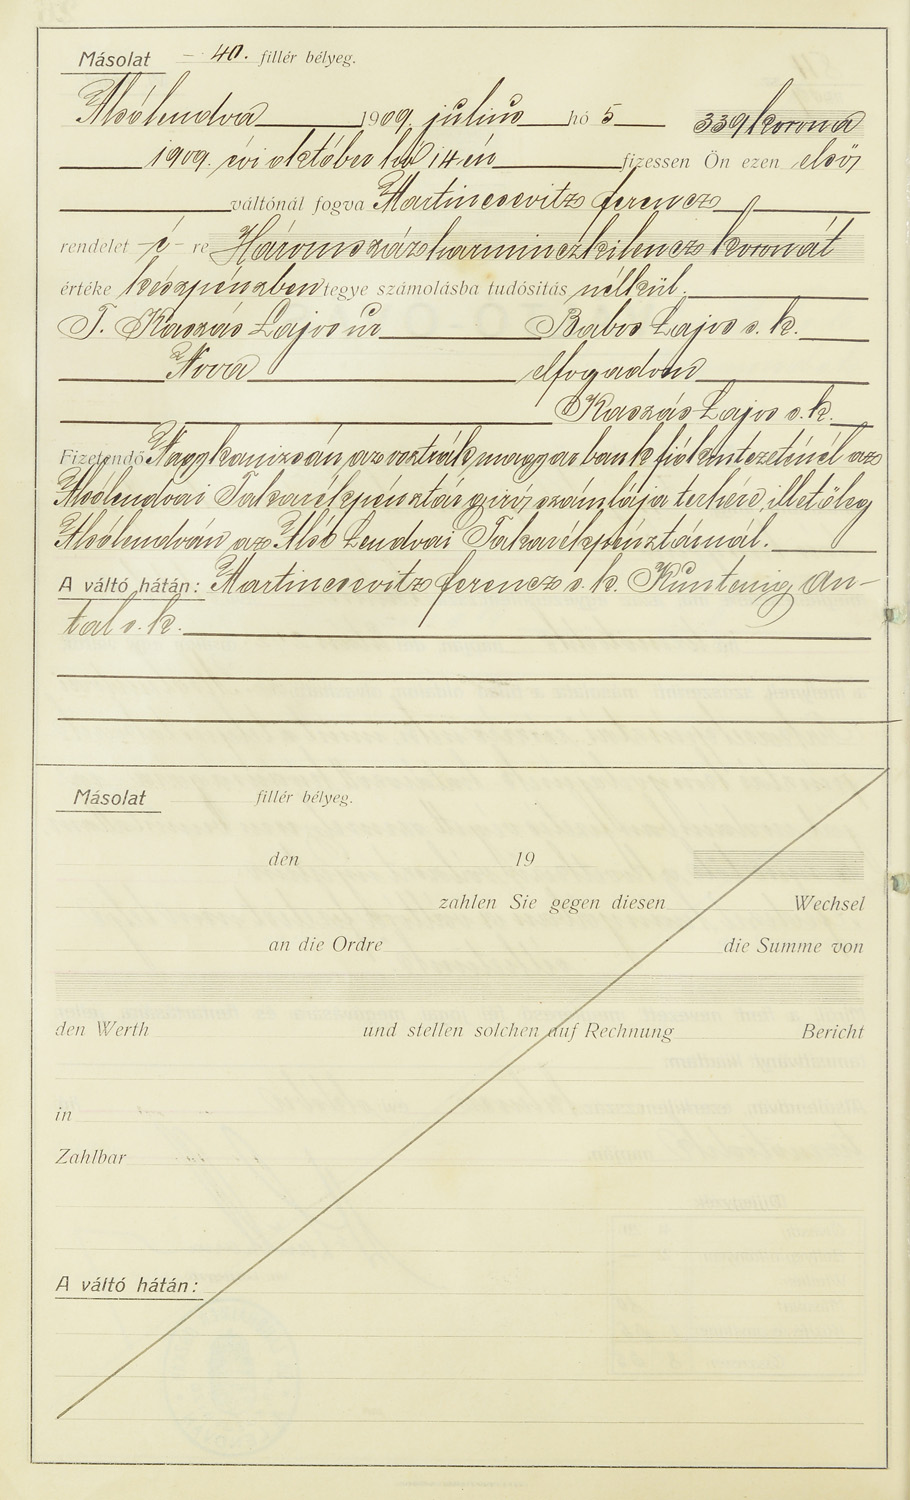 Másolat – 40. fillér bélyeg.
Alsólendva 1909. julius hó 5 339 korona
1909. évi október hó 14 én fizessen Ön ezen első
váltónál fogva Martinecevitz Ferencz
rendelet -é- re Háromszázharminczkilencz koronát
értéke készpénzben tegye számolásba tudósitás nélkül.
T. Kaszás Lajos ur Babos Lajos s. k.
Nova elfogadom
Kaszás Lajos s. k.
Fizetendő Nagykanizsán az osztrák magyar bank fiókintézeténél az
Alsólendvai Takarékpénztár giró számlája terhére, illetőleg
Alsólendván az Alsó Lendvai Takarékpénztárnál.
A váltó hátán: Martinecevitz Ferencz s. k. An-
tal s. k.
Másolat fillér bélyeg.
den 19
zahlen Sie gegen diesen Wechsel
an die Ordre die Summe von
den Werth und stellen solchen auf Rechnung Bericht
in
Zahlbar
A váltó hátán: